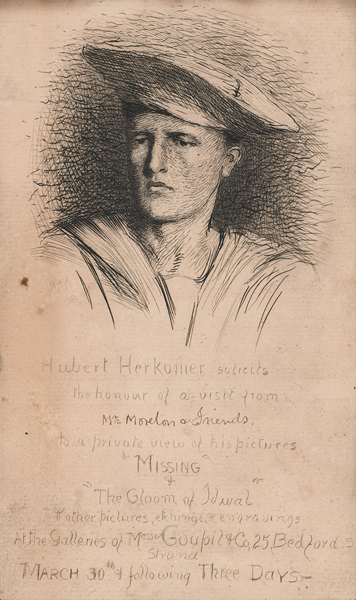 Hubert Herkomer solicits
the honour of a visit from
Mr. Morelon & Friends.
to a private view of his pictures
"MISSING"
&
"The Gloom of Idwal"
& other pictures, etchings & engravings
At the Galleries of Messrs Goupil & Co, 25, Bedford S
Strand
MARCH 30th & following Three Days